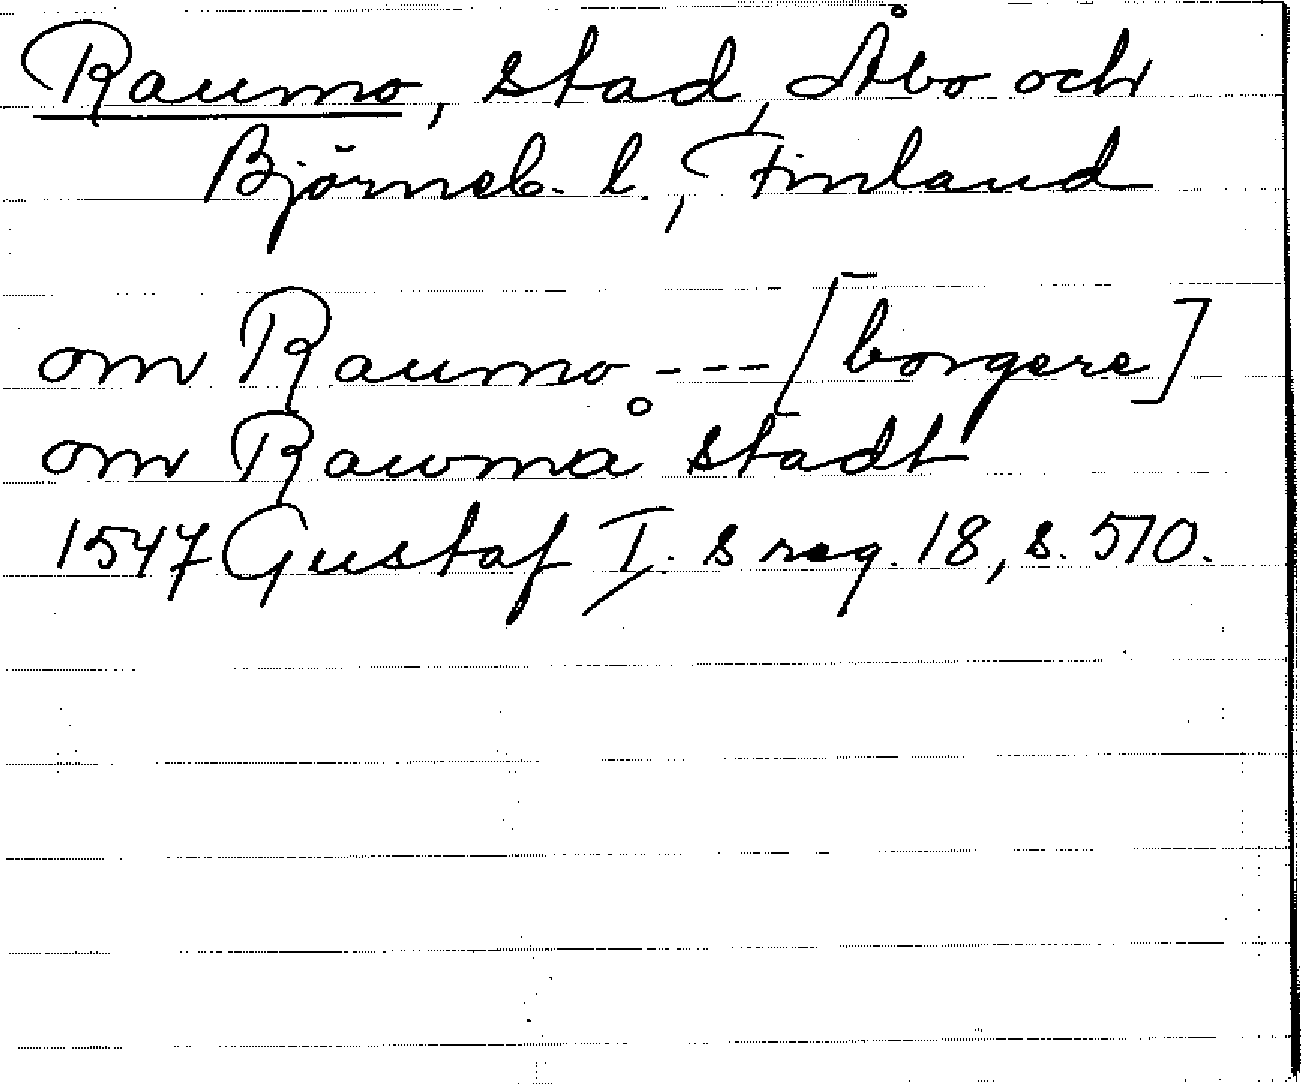 Raumo, stad, Åbo och
Björneb. l., Finland
om Raumo --- [borgere]
om Rawmå stadt
1547 Gustaf I:s reg. 18, s. 510.